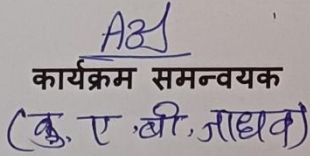 कार्यक्रम समन्वयक
(कु. ए. बी. जाधव)